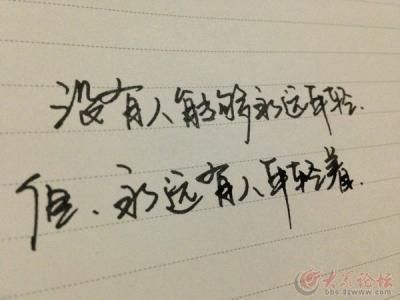 没有人能够永远年轻.
但、永远有人年轻着.
大众论坛
bbs.dzwww.com